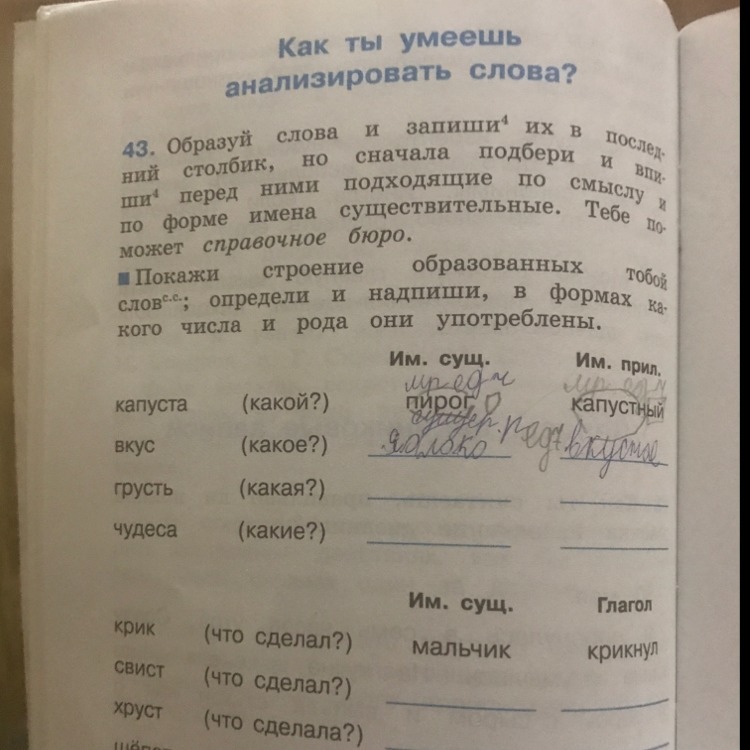 Как ты умеешь
анализировать слова?
43. Образуй слова и запиши⁴ их в послед-
ний столбик, но сначала подбери и впи-
ши⁴ перед ними подходящие по смыслу и
по форме имена существительные. Тебе по-
может справочное бюро.
Покажи строение образованных тобой
слов с.с.; определи и надпиши, в формах ка-
кого числа и рода они употреблены.
Им. сущ. Им. прил.
мр ед ч мр ед ч
капуста (какой?) пирог капустный
вкус (какое?) яблоко вкусное
грусть (какая?)
чудеса (какие?)
Им. сущ. Глагол
крик (что сделал?) мальчик крикнул
свист (что сделал?)
хруст (что сделала?)